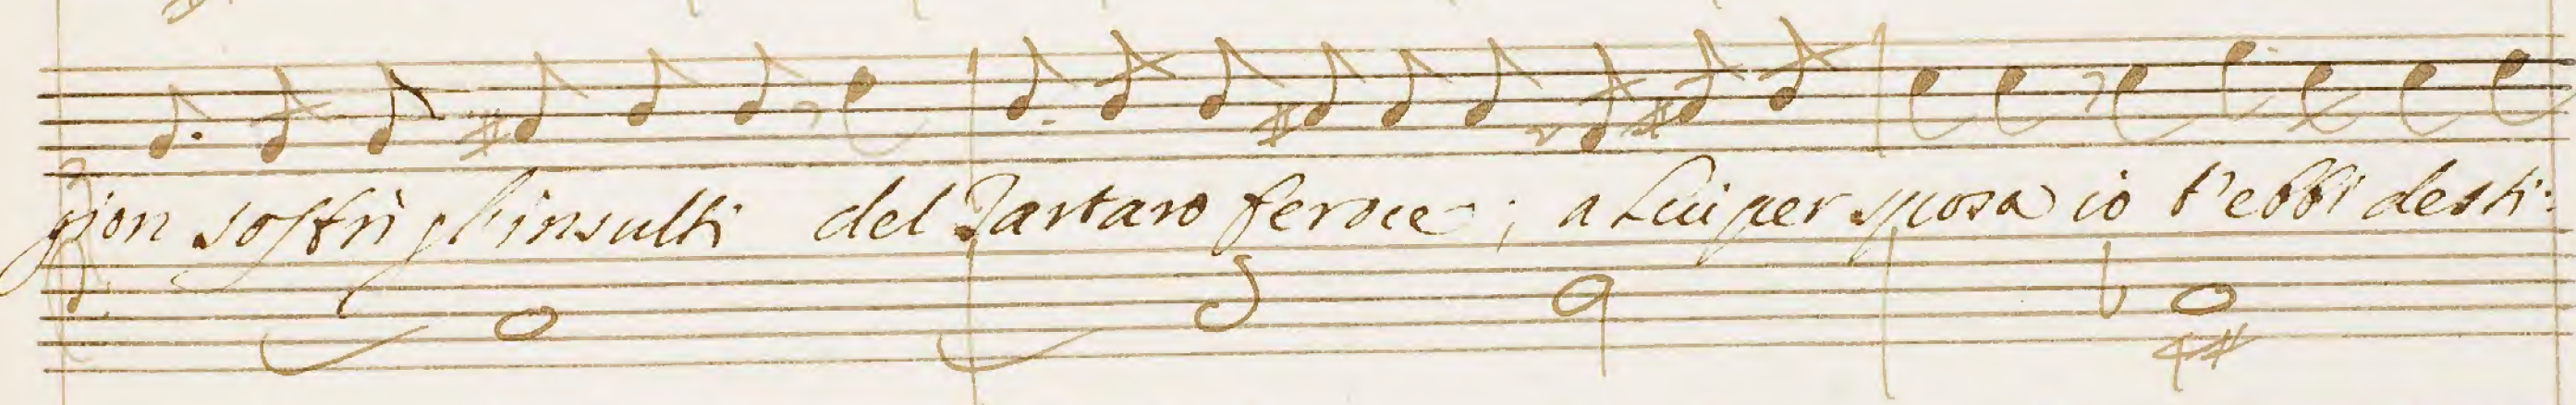 gion soffrì gl'insulti del Tartaro feroce; a lui per sposa io t'ebbi desti: